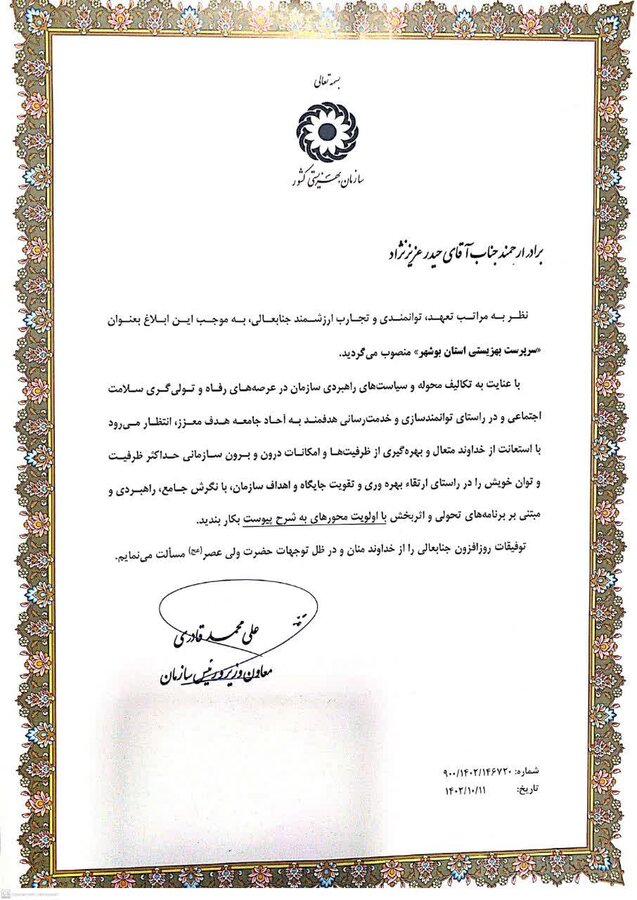 بسمه تعالی
سازمان بهزیستی کشور
برادر ارجمند جناب آقای حیدر عزیزنژاد
نظر به مراتب تعهد، توانمندی و تجارب ارزشمند جنابعالی، به موجب این ابلاغ بعنوان
«سرپرست بهزیستی استان بوشهر» منصوب می‌گردید.
با عنایت به تکالیف محوله و سیاست‌های راهبردی سازمان در عرصه‌های رفاه و تولی‌گری سلامت
اجتماعی و در راستای توانمندسازی و خدمت‌رسانی هدفمند به آحاد جامعه هدف معزز، انتظار می‌رود
با استعانت از خداوند متعال و بهره‌گیری از ظرفیت‌ها و امکانات درون و برون سازمانی حداکثر ظرفیت
و توان خویش را در راستای ارتقاء بهره وری و تقویت جایگاه و اهداف سازمان، با نگرش جامع، راهبردی و
مبتنی بر برنامه‌های تحولی و اثربخش با اولویت محورهای به شرح پیوست بکار بندید.
توفیقات روزافزون جنابعالی را از خداوند منان و در ظل توجهات حضرت ولی عصر(عج) مسألت می‌نمایم.
علی محمد قادری
معاون وزیر و رئیس سازمان
شماره: ۹۰۰/۱۴۰۲/۱۴۶۷۲۰
تاریخ: ۱۴۰۲/۱۰/۱۱